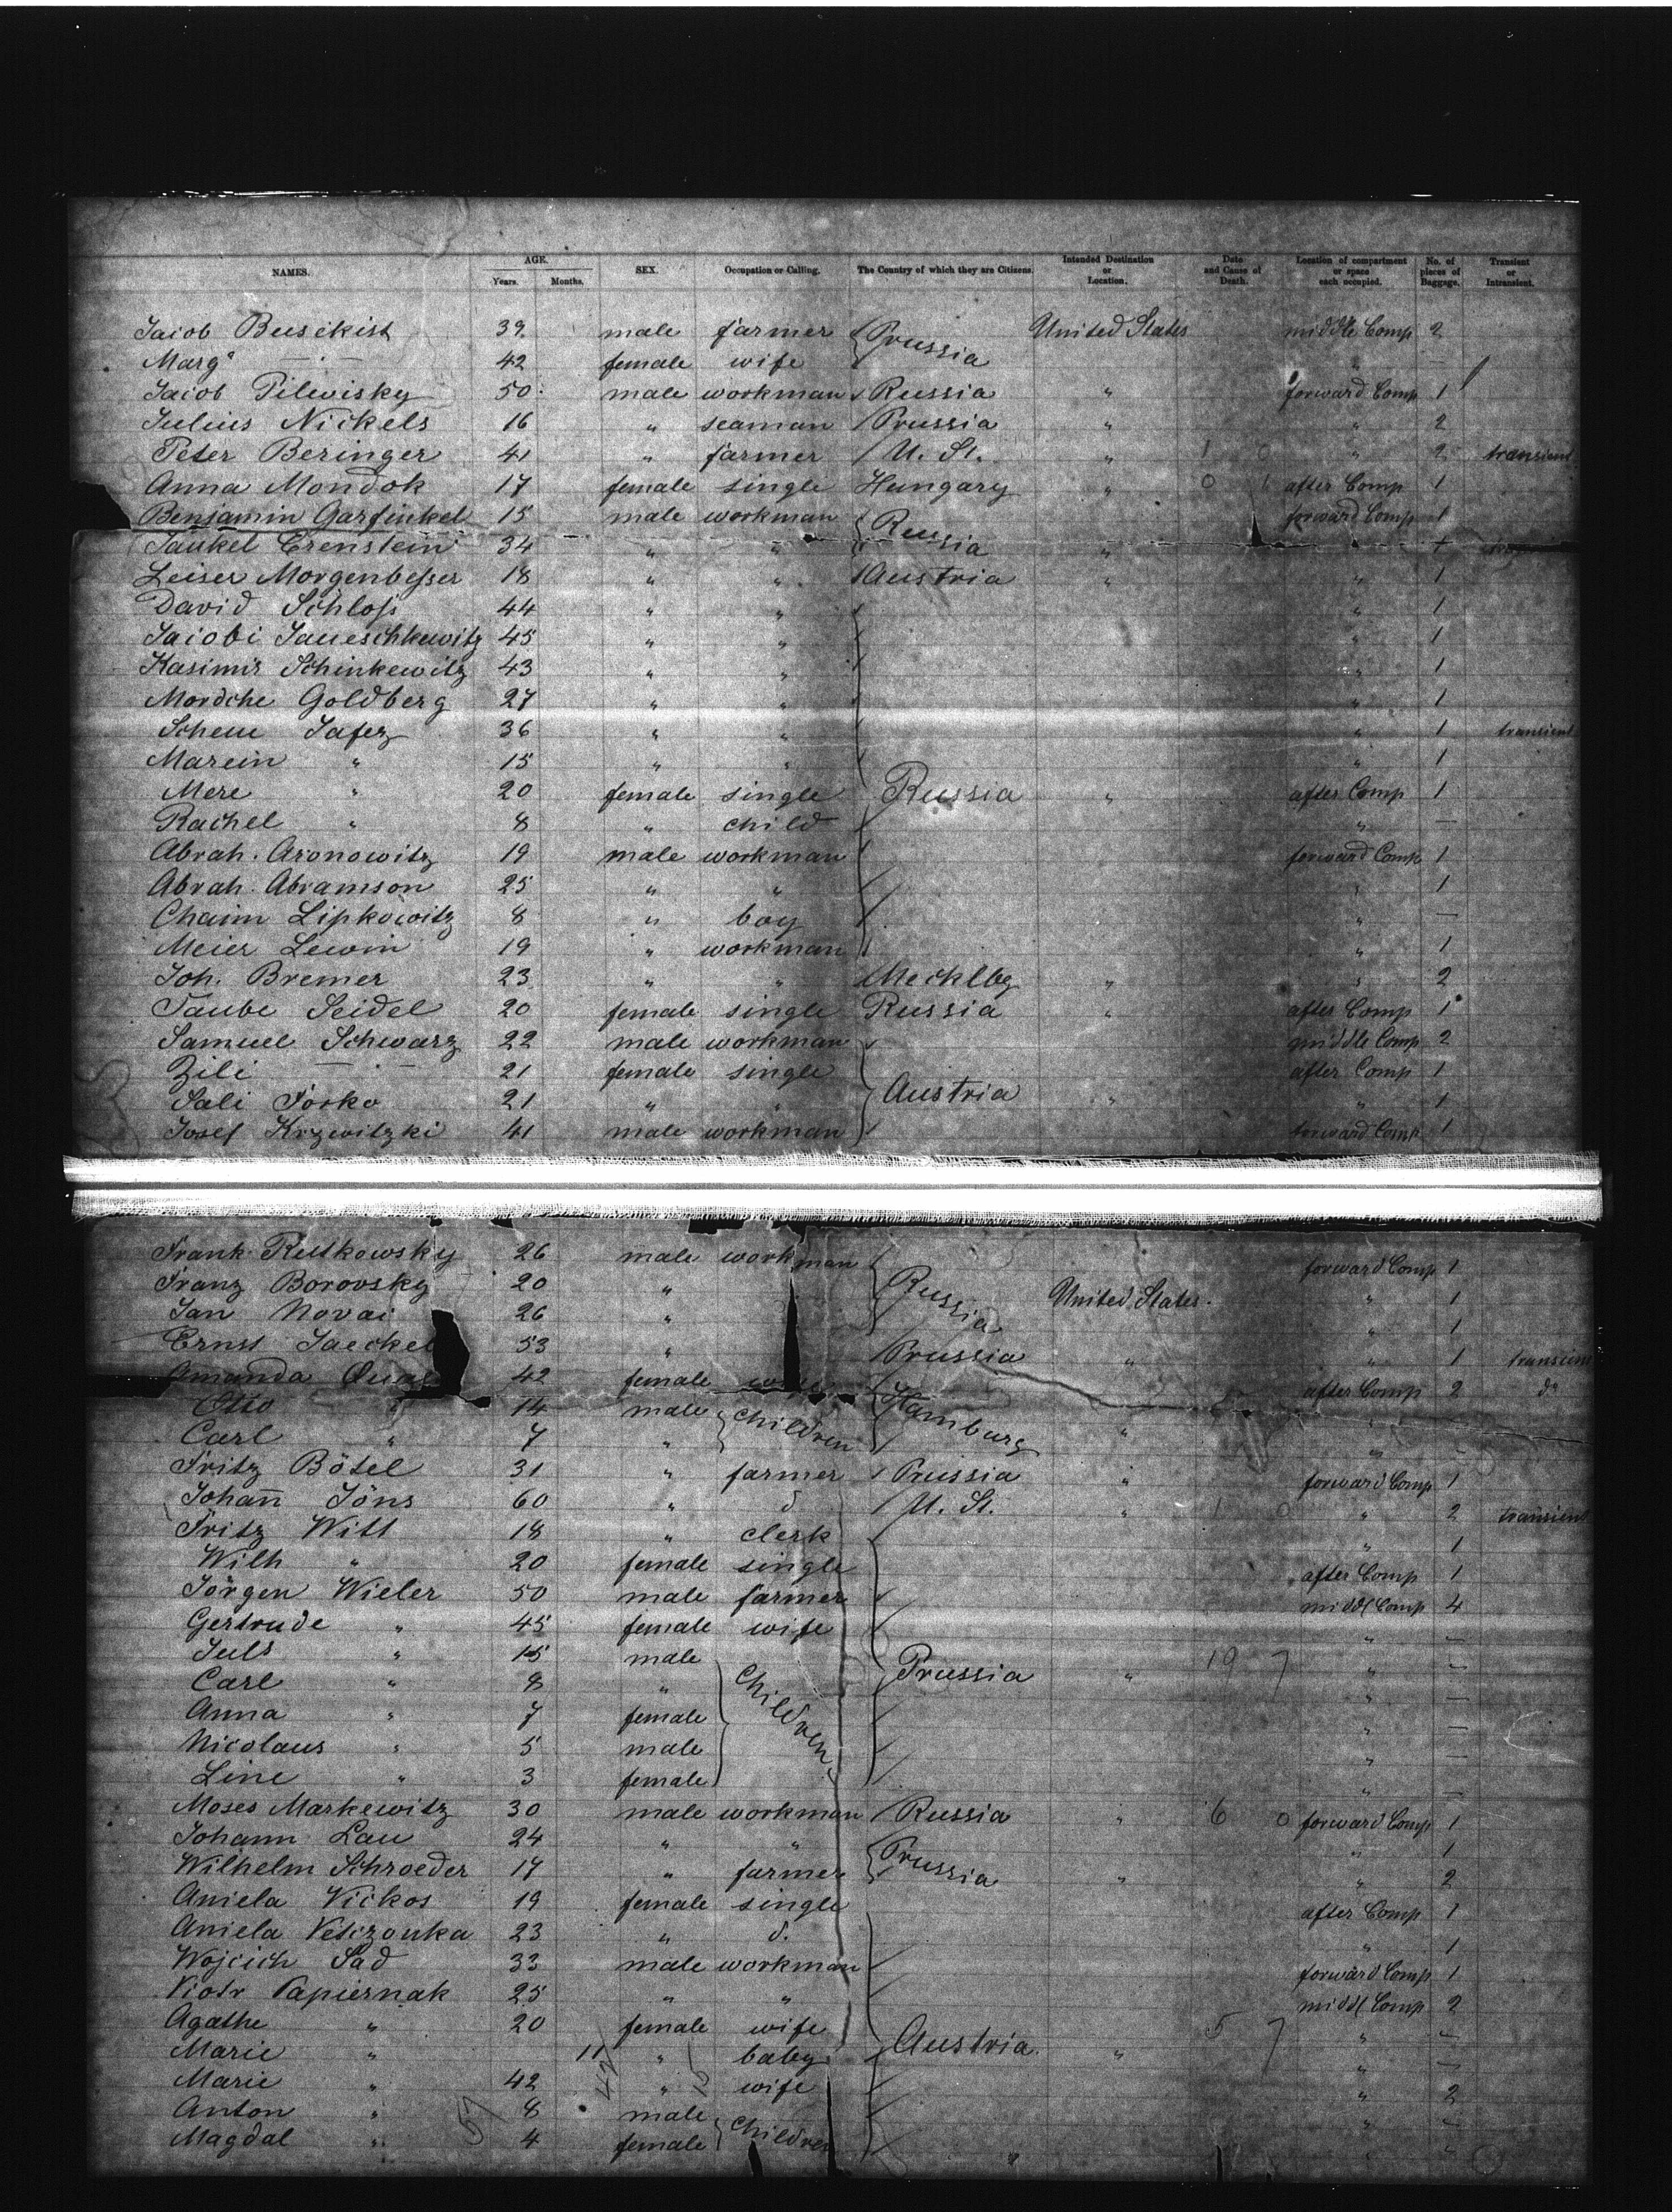 NAMES. AGE. Years. Months. SEX. Occupation or Calling. The Country of which they are Citizens. Intended Destination or Location. Date and Cause of Death. Location of compartment or space each occupied. No. of pieces of Baggage. Transient or Intransient.
Jacob Busekist 39 male farmer Prussia United States middle Comp 2
Marg" — " — 42 female wife "
Jacob Pilewisky 50 male workman Russia " forward Comp 1
Julius Nickels 16 " seaman Prussia " " 2
Peter Beringer 41 " farmer U. St. " 1 0 " 2 transient
Anna Mondok 17 female single Hungary " 0 1 after Comp 1
Benjamin Garfinkel 15 male workman Russia forward Comp 1
Jankel Erenstein 34 " " " "
Leiser Morgenbesser 18 " " Austria " " 1
David Schloss 44 " " " 1
Jacobi Janeschkewitz 45 " " " 1
Kasimir Schinkewitz 43 " " " 1
Mordche Goldberg 27 " " " 1
Scheue Jafez 36 " " " 1 transient
Marein " 15 " " " 1
Mere " 20 female single Russia " after Comp 1
Rachel " 8 " child " —
Abrah. Aronowitz 19 male workman forward Comp 1
Abrah. Abramson 25 " " " 1
Chaim Lipkowitz 8 " boy " —
Meier Lewin 19 " workman " 1
Joh. Bremer 23 " " Mecklbg " " 2
Taube Seidel 20 female single Russia " after Comp 1
Samuel Schwarz 22 male workman middle Comp 2
Zili — " — 21 female single after Comp 1
Sali Forko 21 " " Austria " " 1
Josef Krzewitzki 41 male workman forward Comp 1
Frank Rutkowsky 26 male workman forward Comp 1
Franz Borovsky 20 " Russia United States. " 1
Jan Novai 26 " " 1
Ernst Jaeckel 53 " Prussia " " 1 transient
Amanda 42 female wife after Comp 2 do
Otto " 14 male children Hamburg "
Carl " 7 " " " —
Fritz Bötel 31 " farmer Prussia " forward Comp 1
Johann Jöns 60 " d U. St. " 1 0 " 2 transient
Fritz Witt 18 " clerk " 1
Wilh " 20 female single after Comp 1
Jörgen Wieler 50 male farmer middl Comp 4
Gertrude " 45 female wife " —
Juls " 15 male Prussia " 19 7 " —
Carl " 8 " Children " —
Anna " 7 female " —
Nicolaus " 5 male " —
Line " 3 female " —
Moses Markewitz 30 male workman Russia " 6 0 forward Comp 1
Johann Lau 24 " " Prussia " 1
Wilhelm Schroeder 17 " farmer " " 2
Aniela Vickos 19 female single after Comp 1
Aniela Vetczouka 23 " d. " 1
Wojcich Sad 33 male workman forward Comp 1
Piotr Papiernak 25 " " middl Comp 2
Agathe " 20 female wife 5 7 " —
Marie " 11 " baby Austria. " " —
Marie " 42 " wife " 2
Anton " 8 male Children " —
Magdal " 4 female " "